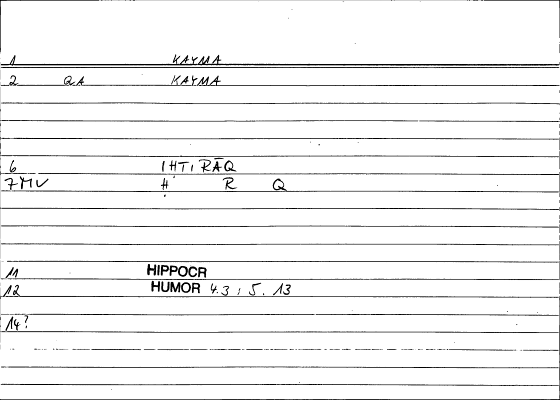 1 KAYMA
2 QA KAYMA
6 IḤTIRĀQ
7 MV Ḥ R Q
11 HIPPOCR
12 HUMOR 4.3 ; 5. 13
14?